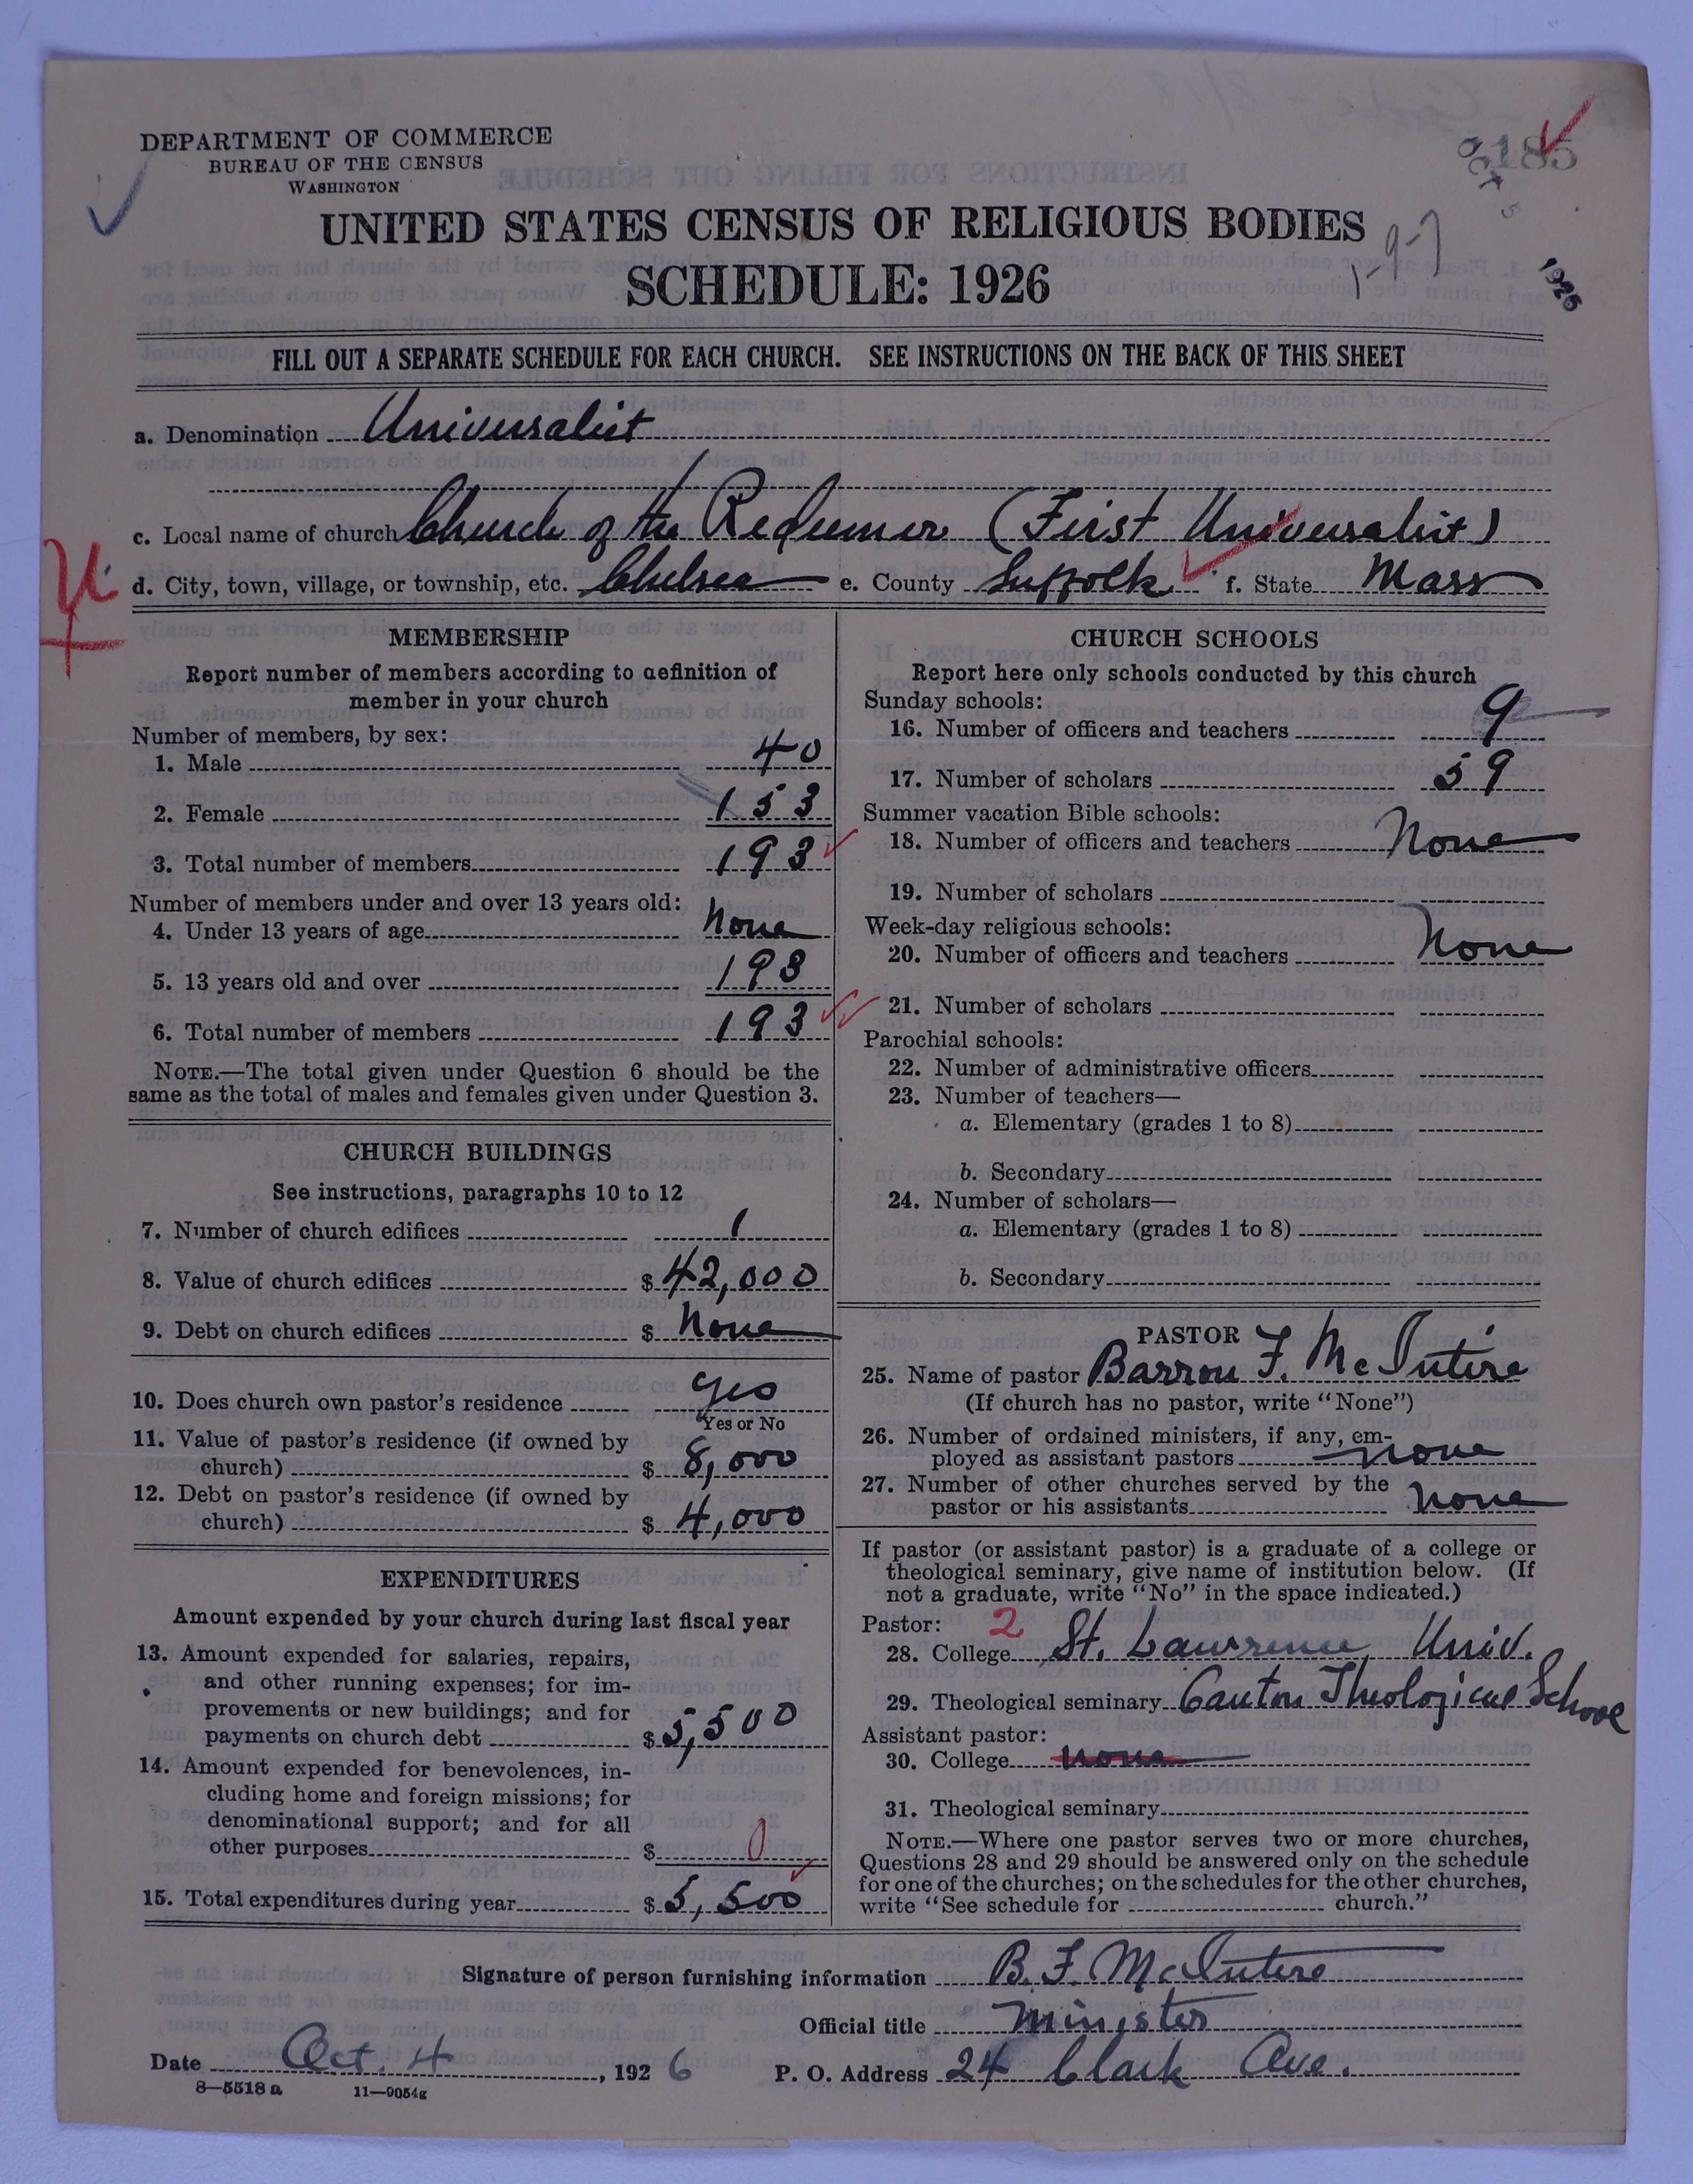 DEPARTMENT OF COMMERCE
BUREAU OF THE CENSUS
WASHINGTON
185
OCT 5 1926
UNITED STATES CENSUS OF RELIGIOUS BODIES
1-9-7
SCHEDULE: 1926
FILL OUT A SEPARATE SCHEDULE FOR EACH CHURCH. SEE INSTRUCTIONS ON THE BACK OF THIS SHEET
a. Denomination Universalist
c. Local name of church Church of the Redeemer (First Universalist)
d. City, town, village, or township, etc. Chelsea e. County Suffolk f. State Mass
MEMBERSHIP
Report number of members according to definition of
member in your church
Number of members, by sex:
1. Male 40
2. Female 153
3. Total number of members 193
Number of members under and over 13 years old:
4. Under 13 years of age None
5. 13 years old and over 193
6. Total number of members 193
NOTE.—The total given under Question 6 should be the
same as the total of males and females given under Question 3.
CHURCH BUILDINGS
See instructions, paragraphs 10 to 12
7. Number of church edifices 1
8. Value of church edifices $ 42,000
9. Debt on church edifices $ None
10. Does church own pastor's residence Yes
Yes or No
11. Value of pastor's residence (if owned by
church) $ 8,000
12. Debt on pastor's residence (if owned by
church) $ 4,000
EXPENDITURES
Amount expended by your church during last fiscal year
13. Amount expended for salaries, repairs,
and other running expenses; for im-
provements or new buildings; and for
payments on church debt $ 5,500
14. Amount expended for benevolences, in-
cluding home and foreign missions; for
denominational support; and for all
other purposes $ 0
15. Total expenditures during year $ 5,500
CHURCH SCHOOLS
Report here only schools conducted by this church
Sunday schools:
16. Number of officers and teachers 9
17. Number of scholars 59
Summer vacation Bible schools:
18. Number of officers and teachers None
19. Number of scholars
Week-day religious schools:
20. Number of officers and teachers None
21. Number of scholars
Parochial schools:
22. Number of administrative officers
23. Number of teachers—
a. Elementary (grades 1 to 8)
b. Secondary
24. Number of scholars—
a. Elementary (grades 1 to 8)
b. Secondary
PASTOR
25. Name of pastor Barron F. McIntire
(If church has no pastor, write "None")
26. Number of ordained ministers, if any, em-
ployed as assistant pastors none
27. Number of other churches served by the
pastor or his assistants none
If pastor (or assistant pastor) is a graduate of a college or
theological seminary, give name of institution below. (If
not a graduate, write "No" in the space indicated.)
Pastor: 2
28. College St. Lawrence Univ.
29. Theological seminary Canton Theological School
Assistant pastor:
30. College none
31. Theological seminary
NOTE.—Where one pastor serves two or more churches,
Questions 28 and 29 should be answered only on the schedule
for one of the churches; on the schedules for the other churches,
write "See schedule for church."
Signature of person furnishing information B. F. McIntire
Official title Minister
Date Oct. 4, 1926 P. O. Address 24 Clark Ave.
8—5518 a 11—9054g